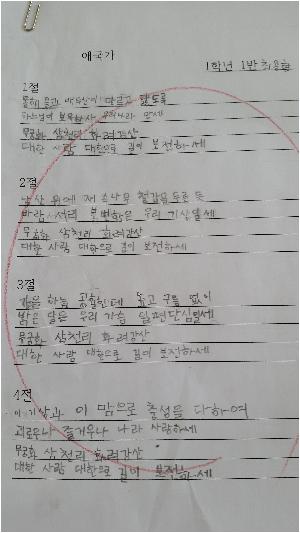 애국가
1학년 1반 최용환
1절
동해물과 백두산이 마르고 닳도록
하느님이 보우하사 우리나라 만세
무궁화 삼천리 화려강산
대한 사람 대한으로 길이 보전하세
2절
남산 위에 저 소나무 철갑을 두른 듯
바람 서리 불변함은 우리 기상일세
무궁화 삼천리 화려강산
대한 사람 대한으로 길이 보전하세
3절
가을 하늘 공활한데 높고 구름 없이
밝은 달은 우리 가슴 일편단심일세
무궁화 삼천리 화려강산
대한 사람 대한으로 길이 보전하세
4절
이 기상과 이 맘으로 충성을 다하여
괴로우나 즐거우나 나라 사랑하세
무궁화 삼천리 화려강산
대한 사람 대한으로 길이 보전하세